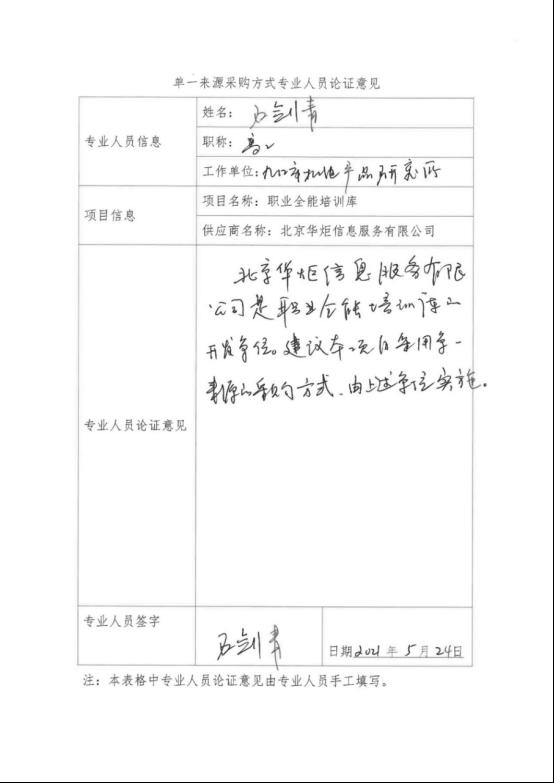 单一来源采购方式专业人员论证意见
专业人员信息
姓名：石剑青
职称：高工
工作单位：九江市机电产品研究所
项目信息
项目名称：职业全能培训库
供应商名称：北京华炬信息服务有限公司
专业人员论证意见
北京华炬信息服务有限
公司是职业全能培训库的
开发单位。建议本项目采用单一
来源的采购方式、由上述单位实施。
专业人员签字
石剑青
日期2021年5月24日
注：本表格中专业人员论证意见由专业人员手工填写。